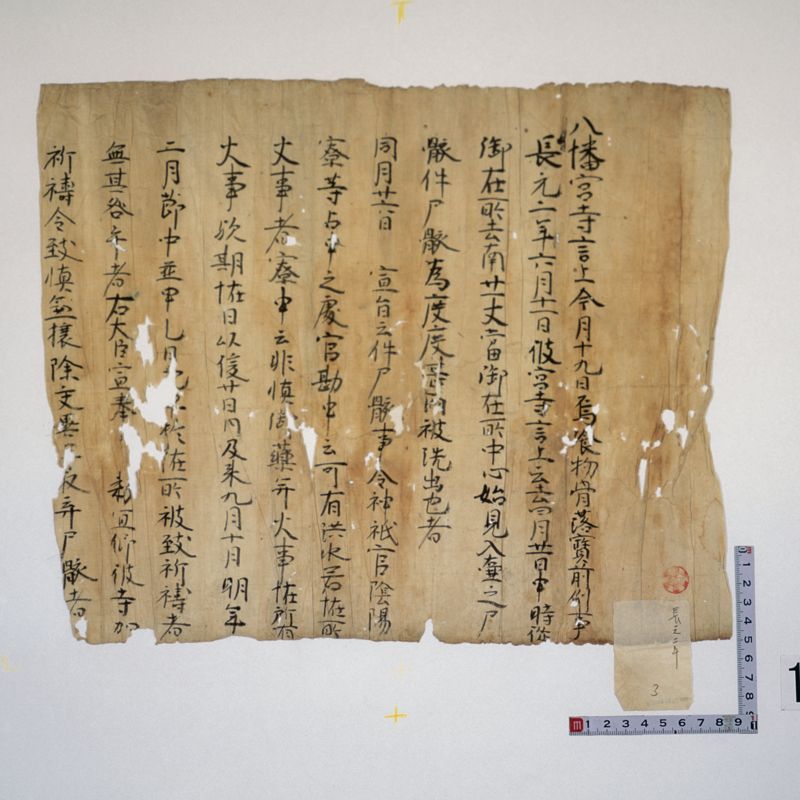 八幡宮寺言上今月十九日烏食物骨落寶前例事
長元二年六月十一日彼宮寺言上云去四月廿日申時從
御在所去南廿一丈當御在所中心始見入棄之尸
骸件尸骸為度度雨被洗出也者
同月廿六日 宣旨云件尸骸事令神祇官陰陽
寮等占申之處官勘申云可有洪水若怪所
丈事者寮申云非慎御藥并火事怪所有
火事歟期怪日以後廿日內及来九月十月明年
二月節中並甲乙日也於怪所被致祈禱者
無其咎乎者右大臣宣奉 勅宜仰彼寺加
祈禱令致慎兼攘除反弃尸骸者
長元二年
3
0 1 2 3 4 5 6 7 8 9
m 1 2 3 4 5 6 7 8 9
1